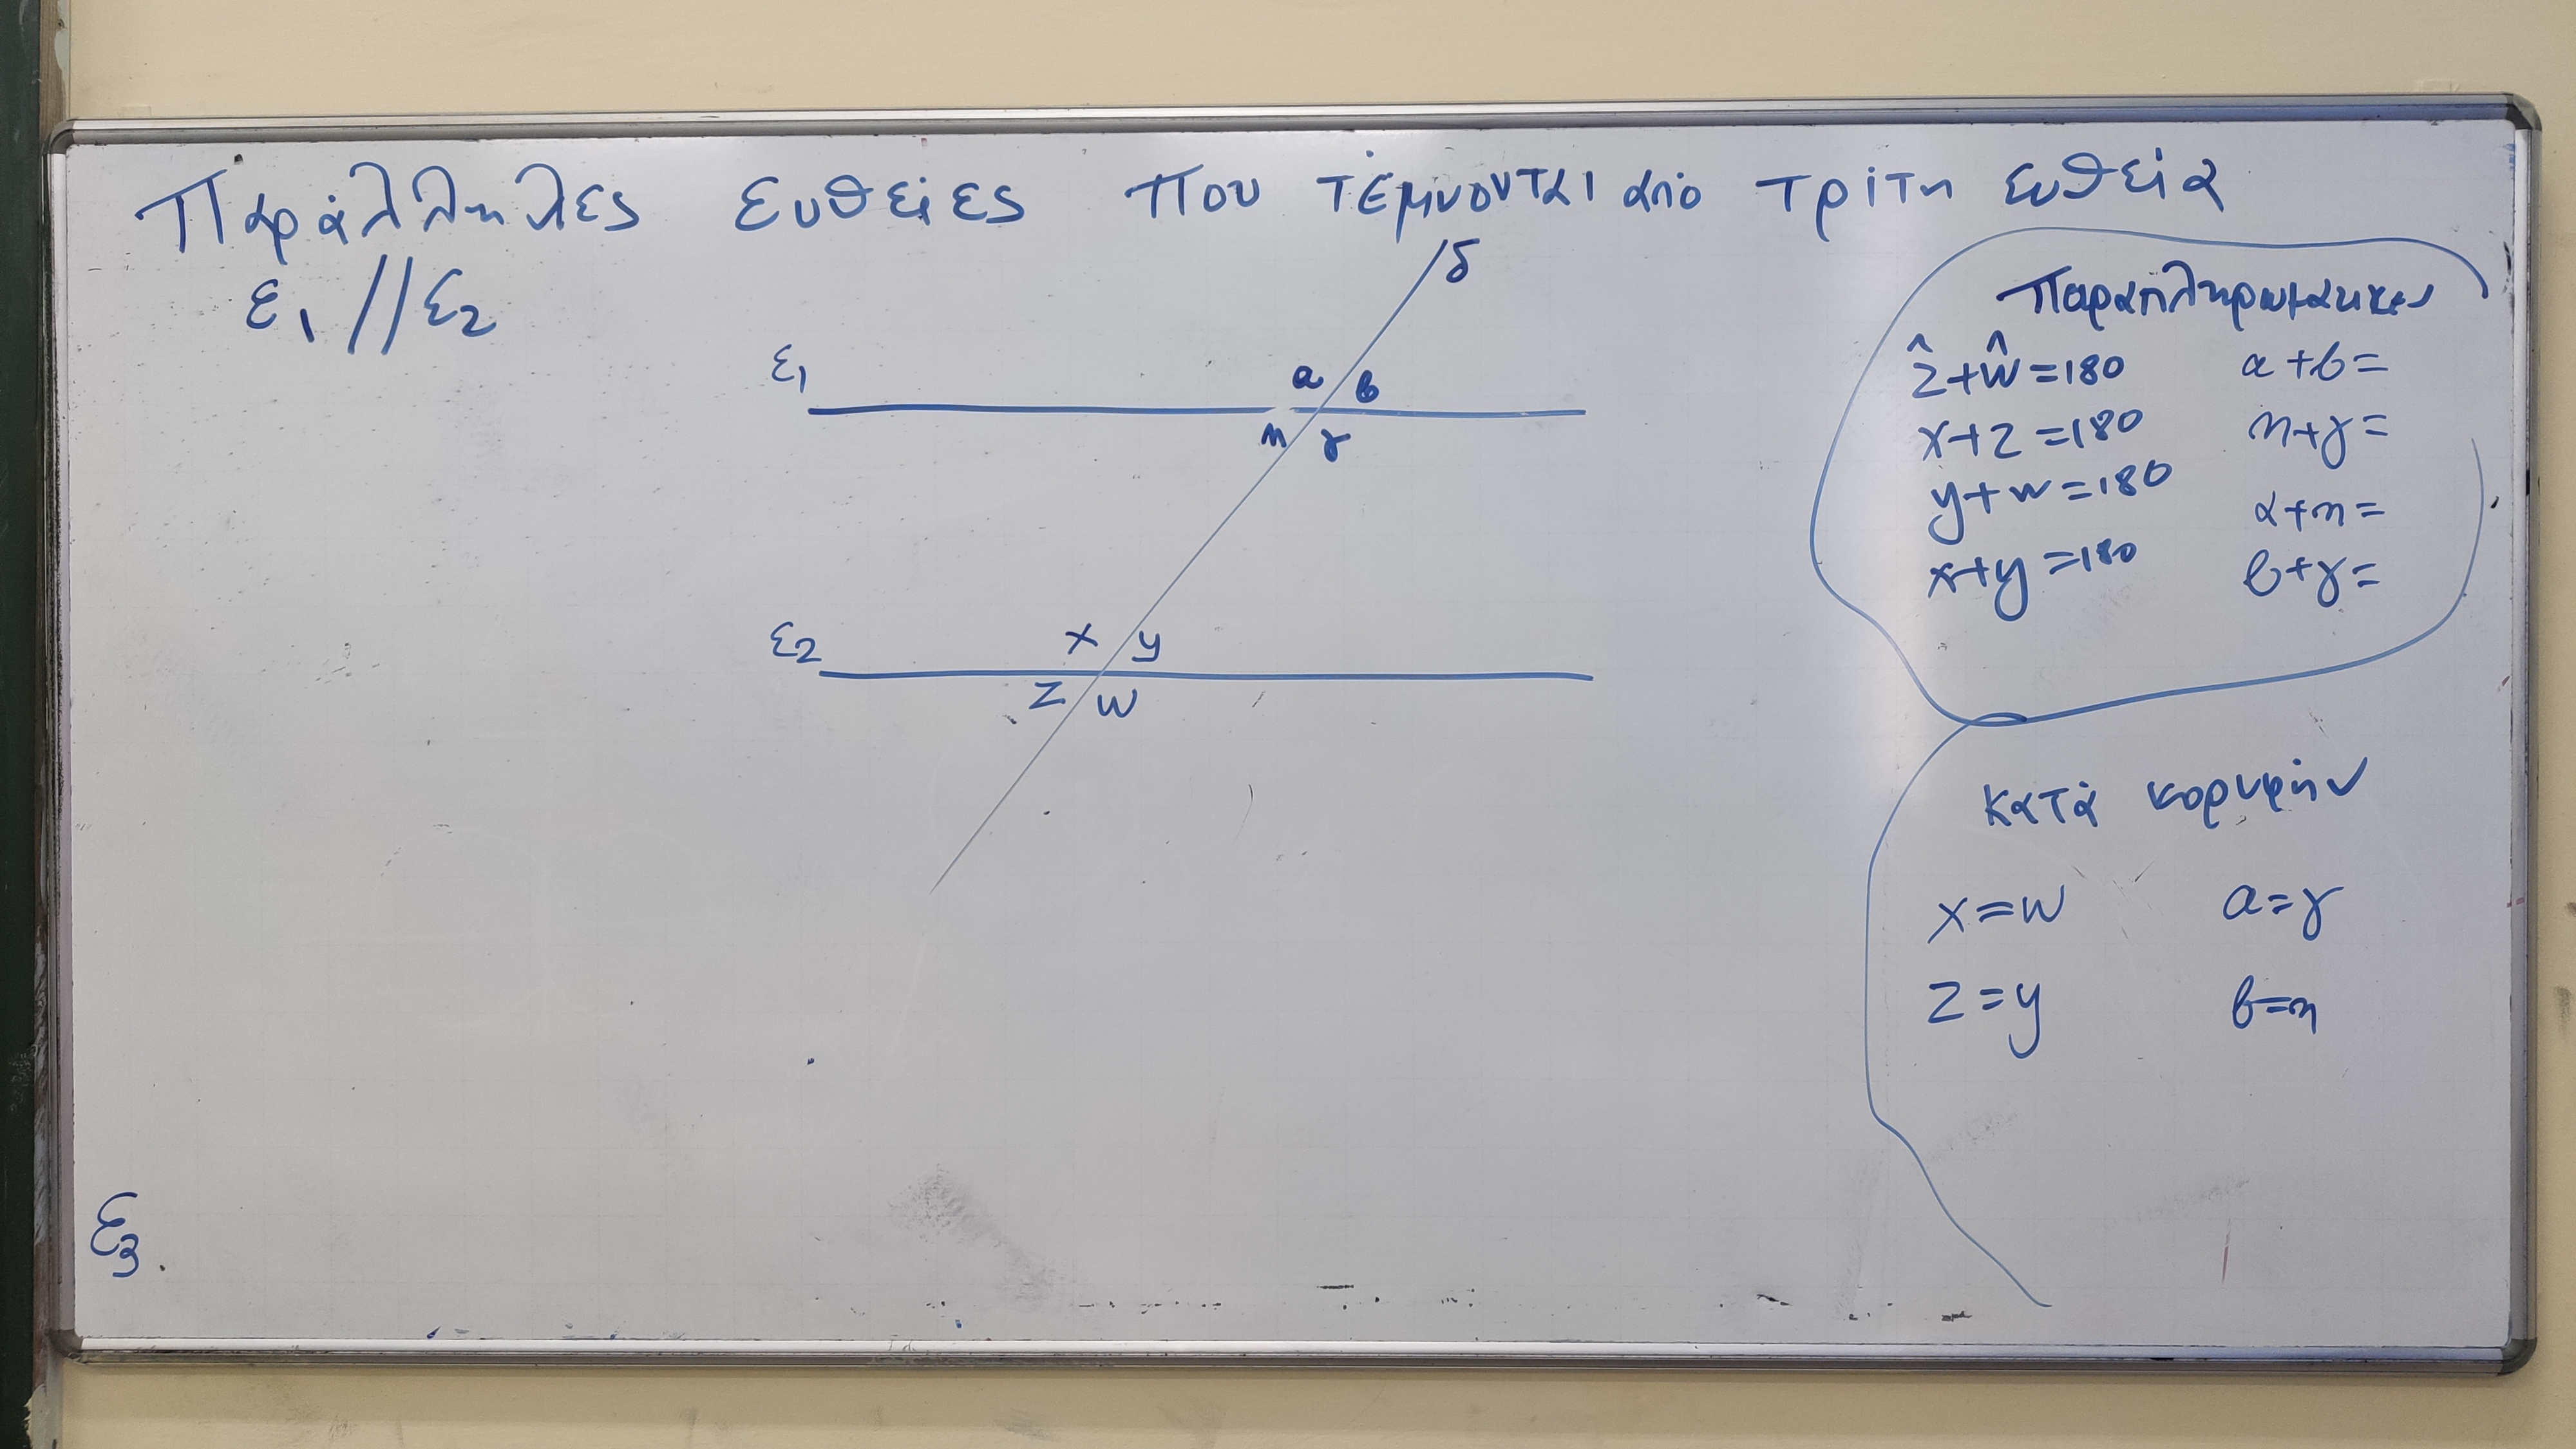 Παράλληλες ευθείες που τέμνονται από τρίτη ευθεία
ε₁ // ε₂
δ
ε₁
a b
η γ
ε₂
x y
z w
Παραπληρωματικές
ẑ+ŵ=180 a+b=
x+z=180 η+γ=
y+w=180 α+η=
x+y=180 b+γ=
κατά κορυφήν
x=w a=γ
z=y b=η
ε₃